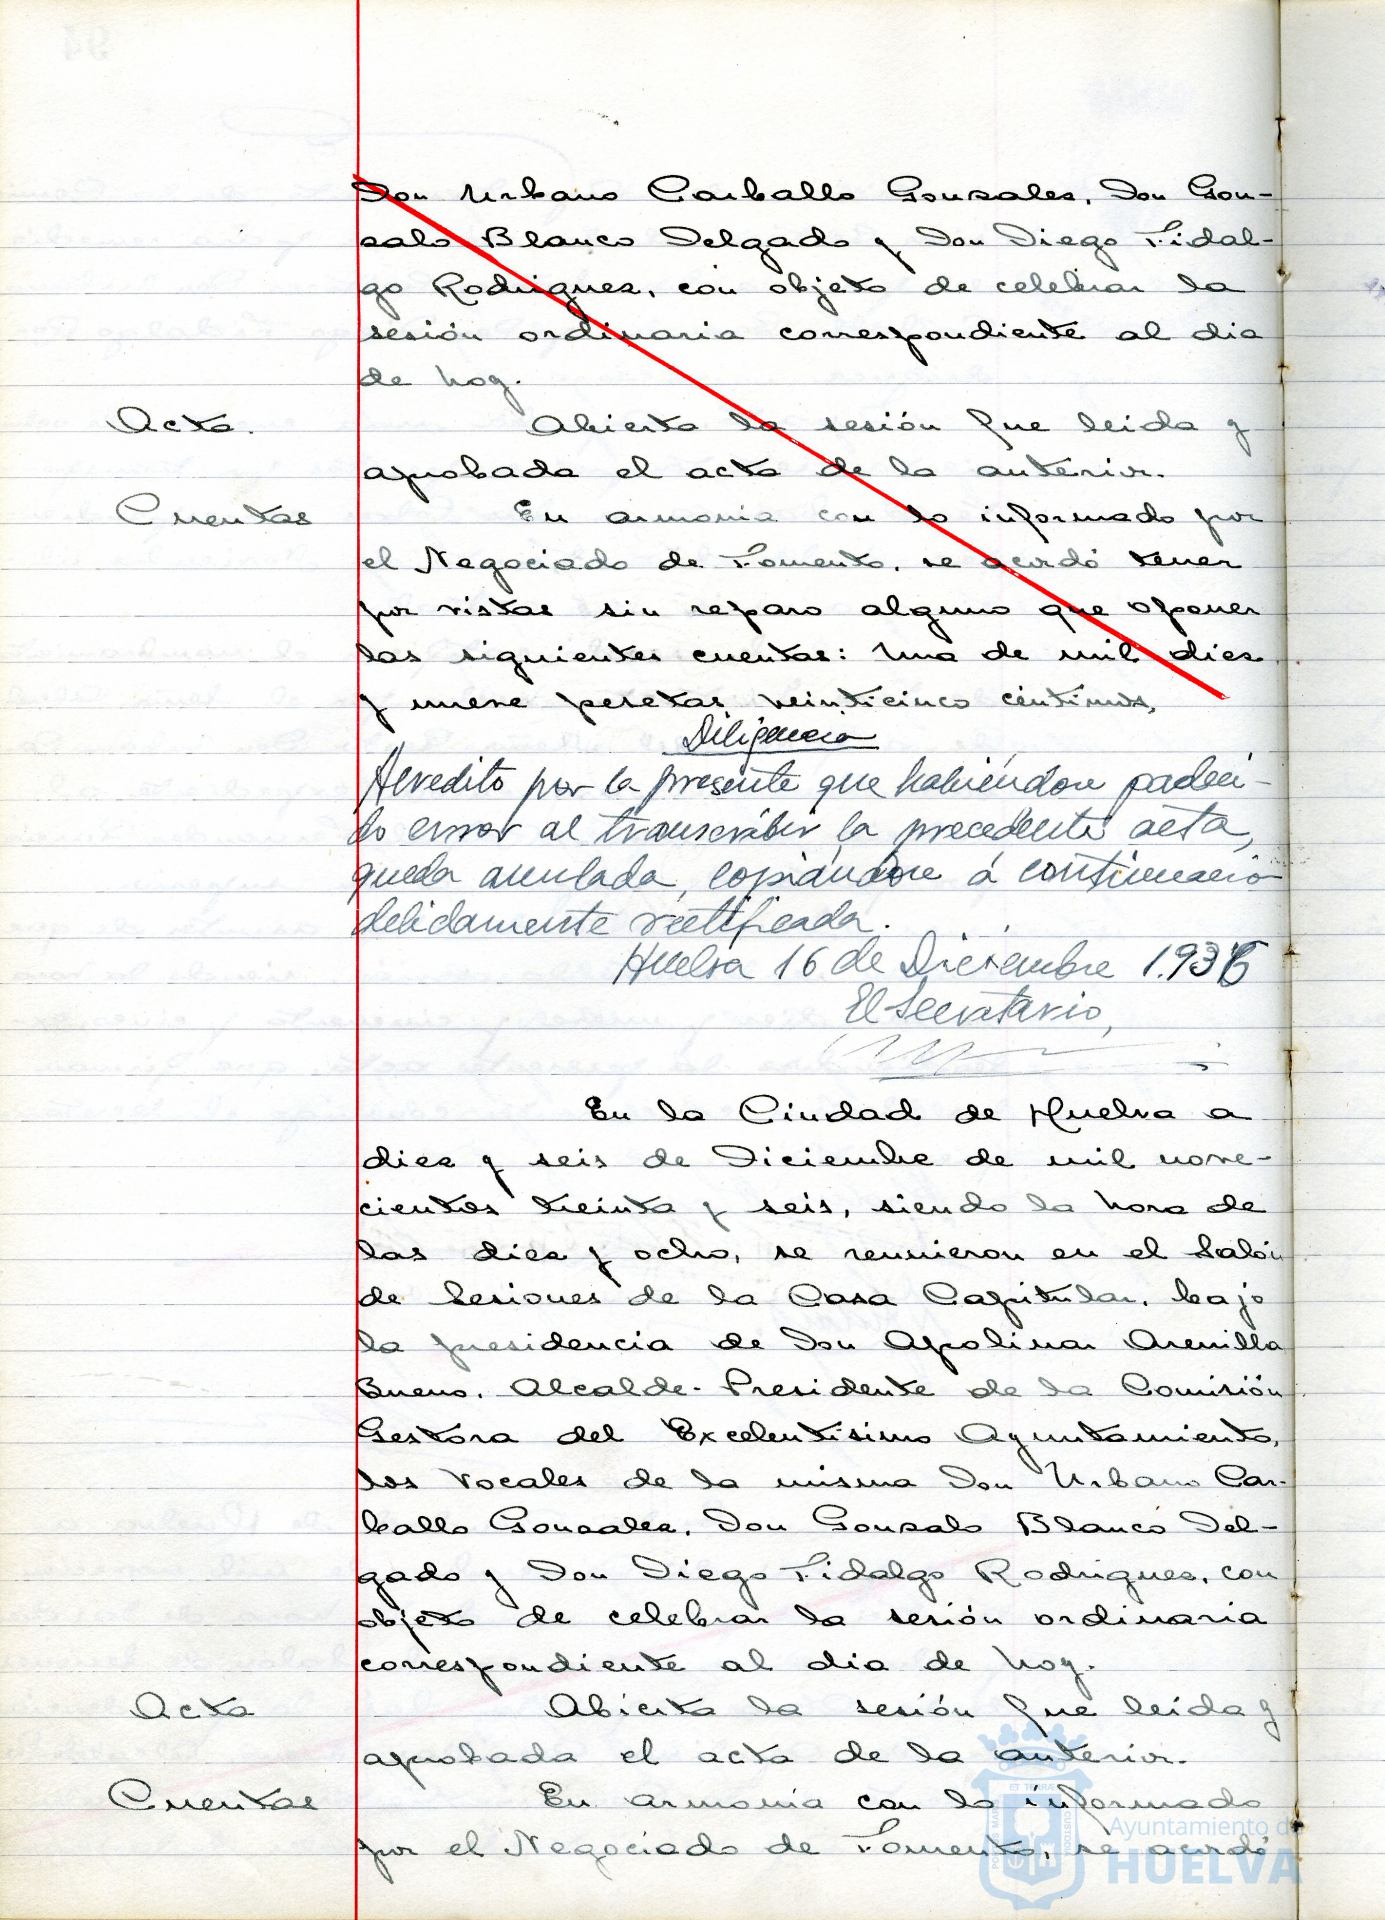 Don Urbano Carballo Gonzales, Don Gon-
zalo Blanco Delgado y Don Diego Fidal-
go Rodrigues, con objeto de celebrar la
sesión ordinaria correspondiente al dia
de hoy.
Acta. Abierta la sesión fue leida y
aprobada el acta de la anterior.
Cuentas En armonia con lo informado por
el Negociado de Fomento, se acordó tener
por vistas sin reparo alguno que oponer
las siguientes cuentas: Una de mil diez
y nueve pesetas veinticinco céntimos,
Diligencia
Acredito por la presente que habiéndose padeci-
do error al transcribir la precedente acta,
queda anulada, copiándose á continuació
debidamente rectificada.
Huelva 16 de Diciembre 1.936
El Secretario,
En la Ciudad de Huelva a
diez y seis de Diciembre de mil nove-
cientos treinta y seis, siendo la hora de
las diez y ocho, se reunieron en el Salón
de Sesiones de la Casa Capitular, bajo
la presidencia de Don Apolinar Arenilla
Bueno, Alcalde-Presidente de la Comisión
Gestora del Excelentisimo Ayuntamiento,
los Vocales de la misma Don Urbano Car-
ballo Gonzalez, Don Gonzalo Blanco Del-
gado y Don Diego Fidalgo Rodrigues, con
objeto de celebrar la sesión ordinaria
correspondiente al dia de hoy.
Acta Abierta la sesión fue leida y
aprobada el acta de la anterior.
Cuentas En armonia con lo informado
por el Negociado de Fomento, se acordó
Ayuntamiento de
HUELVA